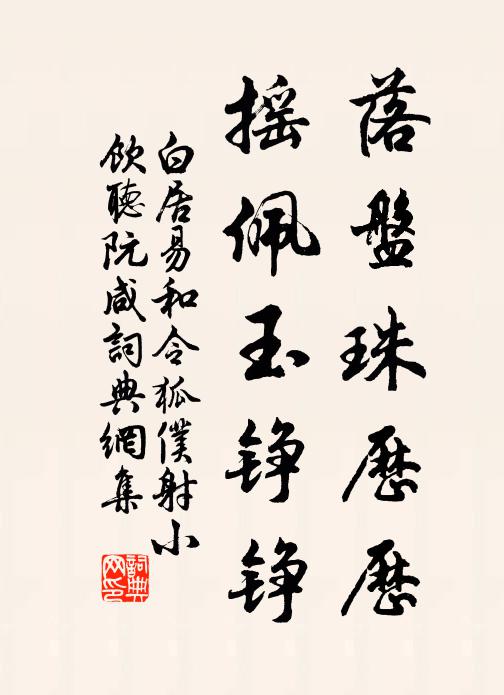 落盤珠歷歷
搖佩玉錚錚
白居易和令狐僕射小
飲聽阮咸詞典網集
詞典网印